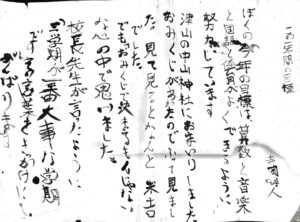 一年間の目標
ぼくの今年の目標は、算数と音楽
と国語と体育がよくできるように
努力しています
津山の中山神社にお参りしました
おみくじがあたのでふって見まし
た。見て見たられんと末吉
でした。
でもおみくじで決まるもんじゃ
な心の中で思いました。
校長先生が言たように
三学期が一番大事な学期
です の言葉をきっかけにして
がんばります